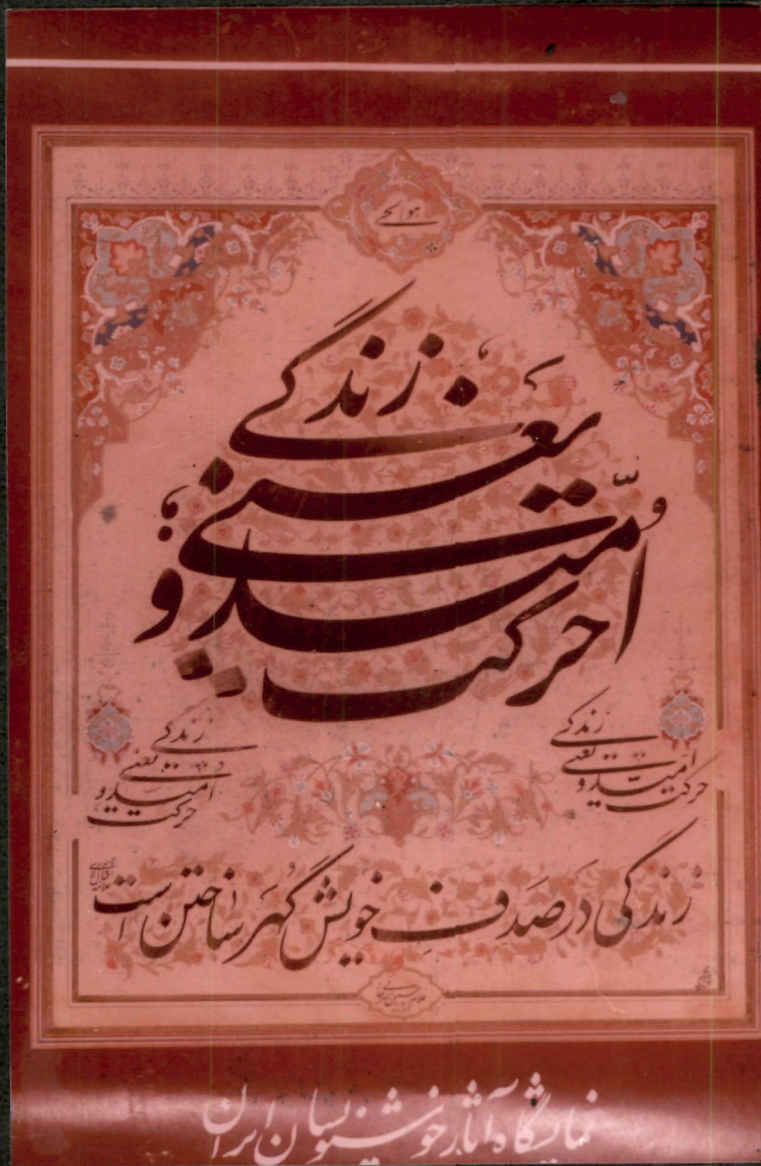 هوالحی
زندگی
یعنی
امّید و
حرکت
زندگی
یعنی
امّید و
حرکت
زندگی
یعنی
امید و
حرکت
زندگی در صدف خویش گُهر ساختن است
نمایشگاه آثار خوشنویسان ایران